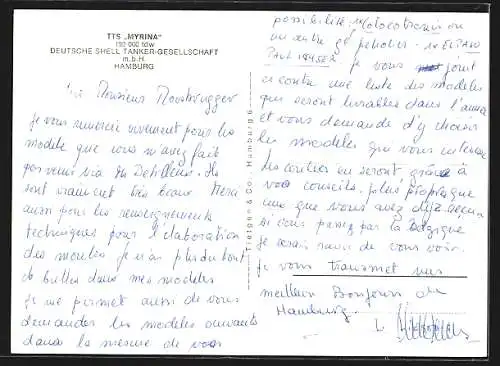 TTS "MYRINA"
190 000 tdw
DEUTSCHE SHELL TANKER-GESELLSCHAFT
m.b.H.
HAMBURG
Monsieur
je vous remercie vivement pour les
modèle que vous m'avez fait
parvenir via
sont vraiment très beaux Merci
aussi pour les renseignements
techniques pour l'élaboration
des moules je n'ai plus du tout
de bulles dans mes modèles
je me permet aussi de vous
demander les modèles suivants
dans la mesure de vos
Tietgen & Co. Hamburg 6
possibilité: 1x ou
un autre gd petrolier. 1x EL PASO
PAUL KAYSER je vous joint
ci contre une liste des modèles
qui seront livrables dans l'année
et vous demande d'y choisir
les modèles qui vous intéresse
Les seront, grâce à
vos conseils, plus propres que
ceux que vous avez déjà reçu
si vous passez par la Belgique
je serais ravi de vous voir.
je vous transmet mes
meilleur Bonjour de
Hamburg.